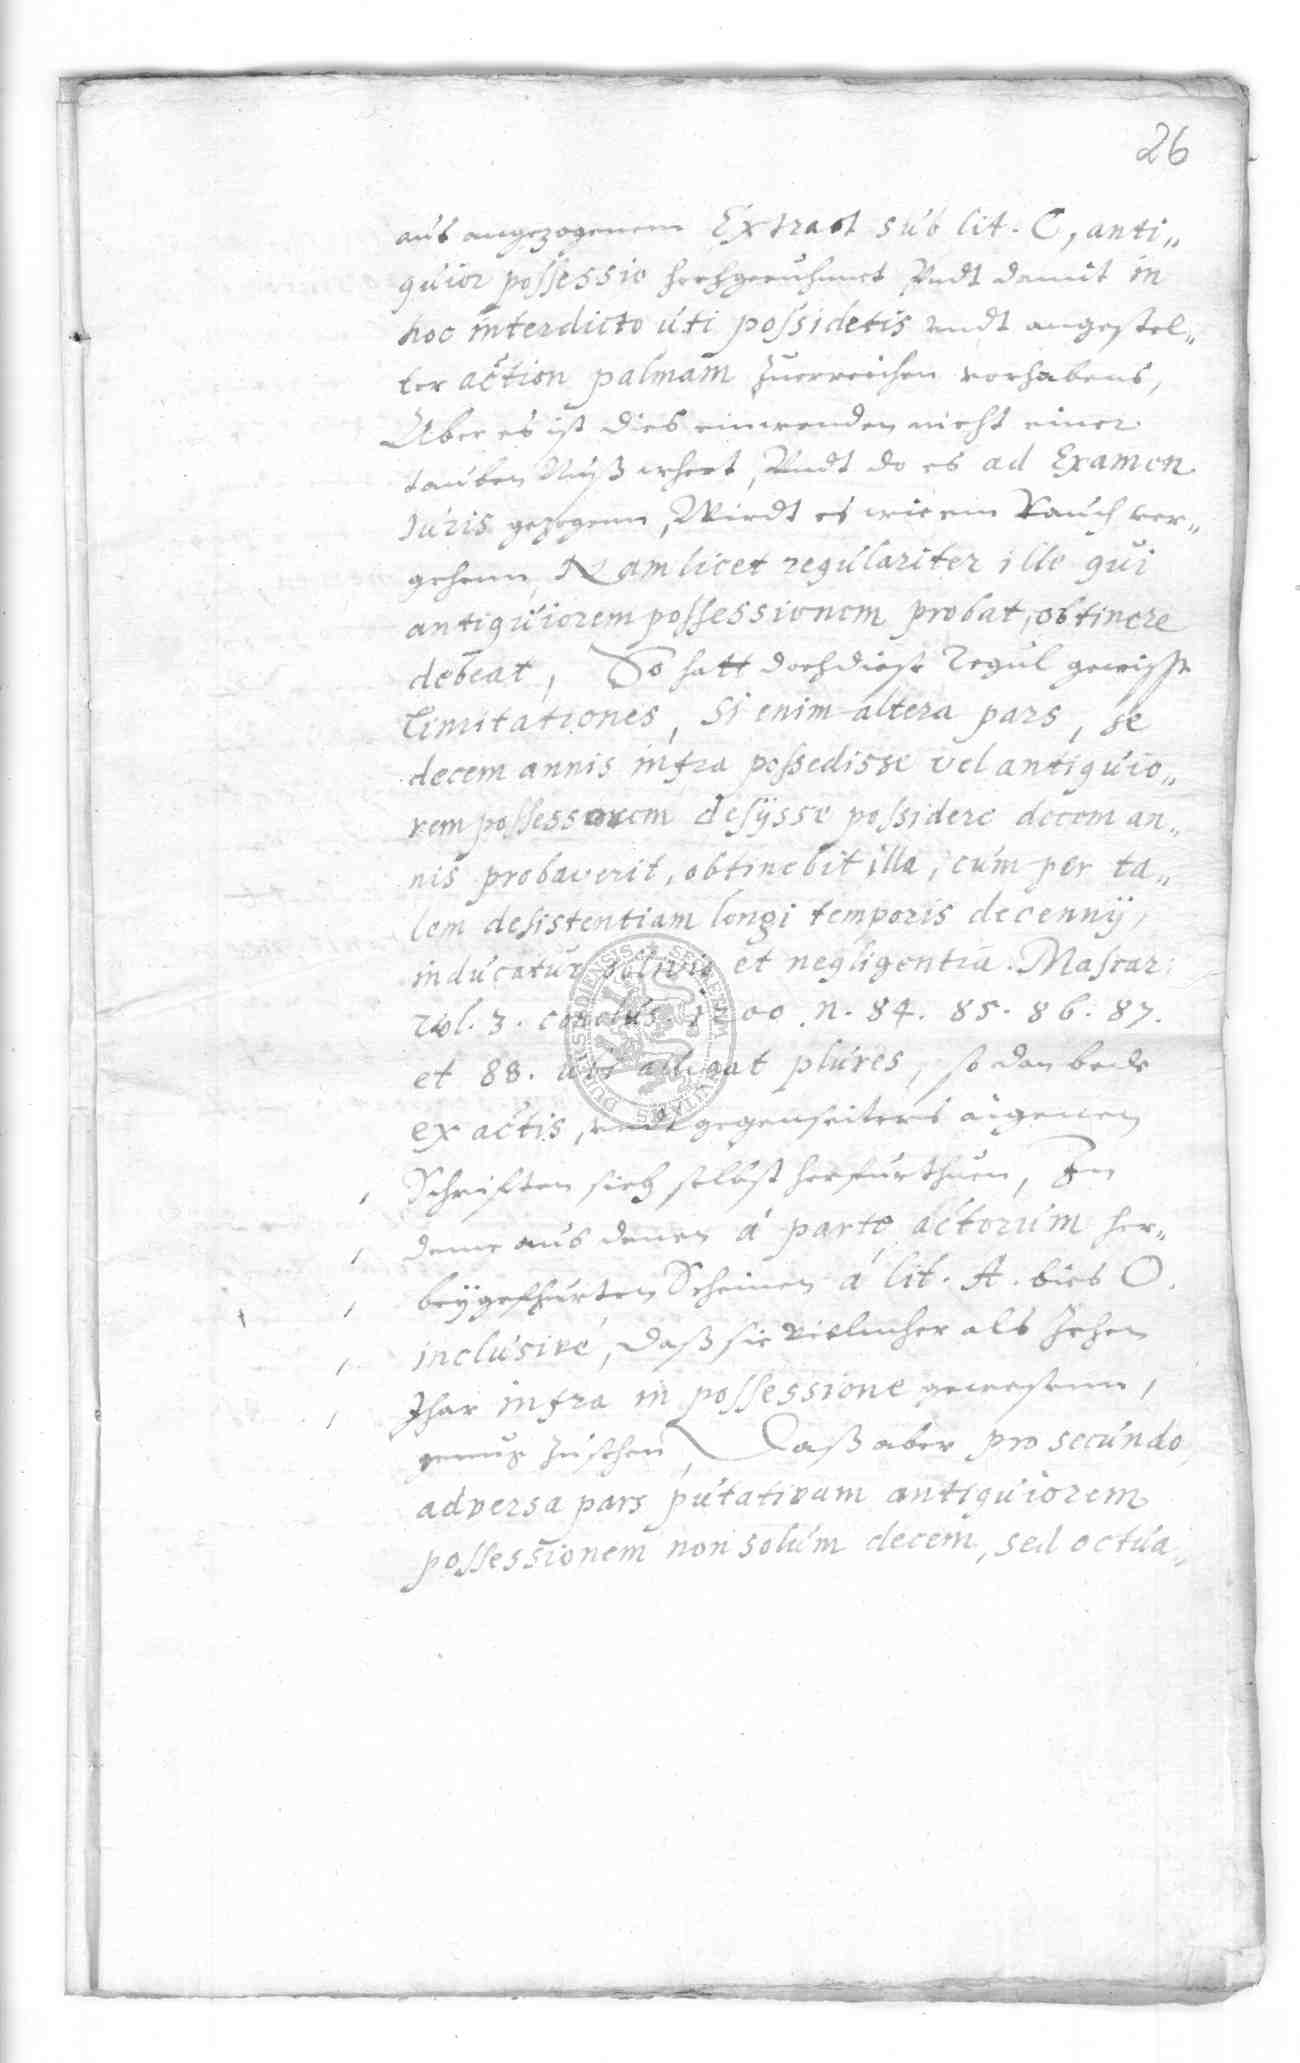 26
aus angezogenem Extract sub lit. C, anti„
quior possessio hochgeruhmet Vndt damit in
hoc interdicto uti possidetis vndt angestel„
ter action palmam zuerreichen vorhabens,
Aber es ist dies einwenden nicht einer
tauben Nuß wehrt, Vndt do es ad Examen
Iuris gezogenn, Wirdt es wie ein Rauch ver„
gehenn, Nam licet regulariter ille qui
antiquiorem possessionem probat, obtinere
debeat, So hatt doch diese Regul gewisse
limitationes, Si enim altera pars, se
decem annis infra possedisse vel antiquio„
rem possessorem desijsse possidere decem an„
nis probaverit, obtinebit illa, cum per ta„
lem desistentiam longi temporis decennij,
inducatur oblivio et negligentia. Mascar:
vol. 3. conclus. 1200. n. 84. 85. 86. 87.
et 88. ubi allegat plures, so dan bede
ex actis, vndt gegenseiters aigenen
Schrifften sich selbst herfürthuen, In
deme aus denen á parte actorum her„
beÿgefhurten Scheinen á lit. A. bies O.
inclusive, daß sie vielmher als Zehen
Jhar infra in possessione gewesenn,
genug zusehen, Daß aber pro secundo,
adversa pars putativam antiquiorem
possessionem non solum decem, sed octua„
SIGILLUM UNIVERSITATIS DUNELMENSIS